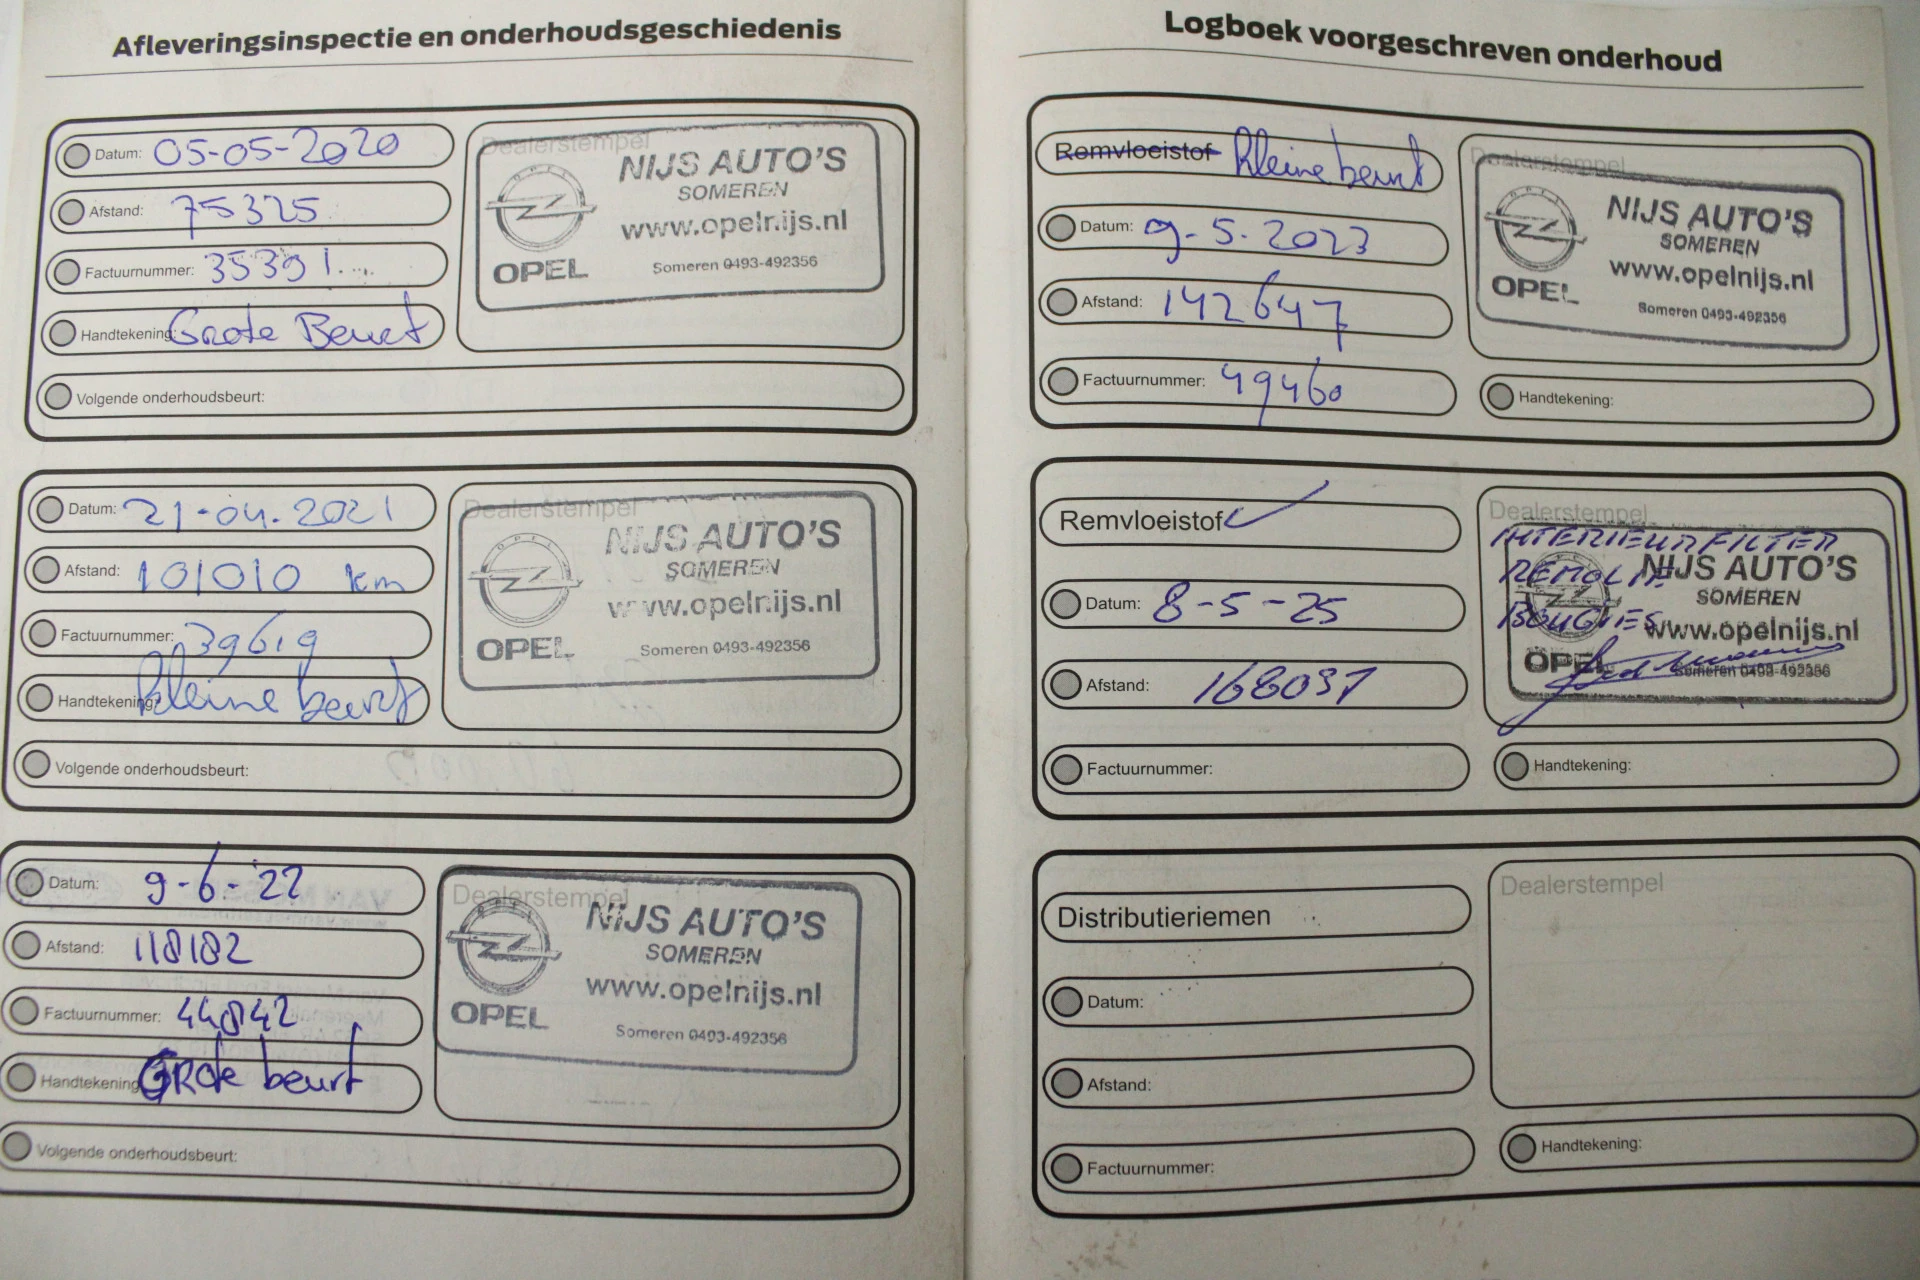 Afleveringsinspectie en onderhoudsgeschiedenis
Datum: 05-05-2020
Afstand: 75325
Factuurnummer: 35391
Handtekening: Grote Beurt
Volgende onderhoudsbeurt:
Dealerstempel
OPEL
NIJS AUTO'S
SOMEREN
www.opelnijs.nl
Someren 0493-492356
OPEL
Datum: 21-04-2021
Afstand: 101010 km
Factuurnummer: 39619
Handtekening: kleine beurt
Volgende onderhoudsbeurt:
Dealerstempel
OPEL
NIJS AUTO'S
SOMEREN
www.opelnijs.nl
Someren 0493-492356
OPEL
Datum: 9-6-22
Afstand: 118182
Factuurnummer: 44842
Handtekening: GRote beurt
Volgende onderhoudsbeurt:
Dealerstempel
OPEL
NIJS AUTO'S
SOMEREN
www.opelnijs.nl
Someren 0493-492356
OPEL
Logboek voorgeschreven onderhoud
Remvloeistof kleine beurt
Datum: 9-5-2023
Afstand: 142647
Factuurnummer: 49460
Dealerstempel
NIJS AUTO'S
SOMEREN
www.opelnijs.nl
Someren 0493-492356
OPEL
Handtekening:
Remvloeistof
Datum: 8-5-25
Afstand:
Factuurnummer:
Dealerstempel
INTERIEURFILTER
BOUGIES
NIJS AUTO'S
SOMEREN
www.opelnijs.nl
Someren 0493-492356
OPEL
Handtekening:
Distributieriemen
Datum:
Afstand:
Factuurnummer:
Dealerstempel
Handtekening: